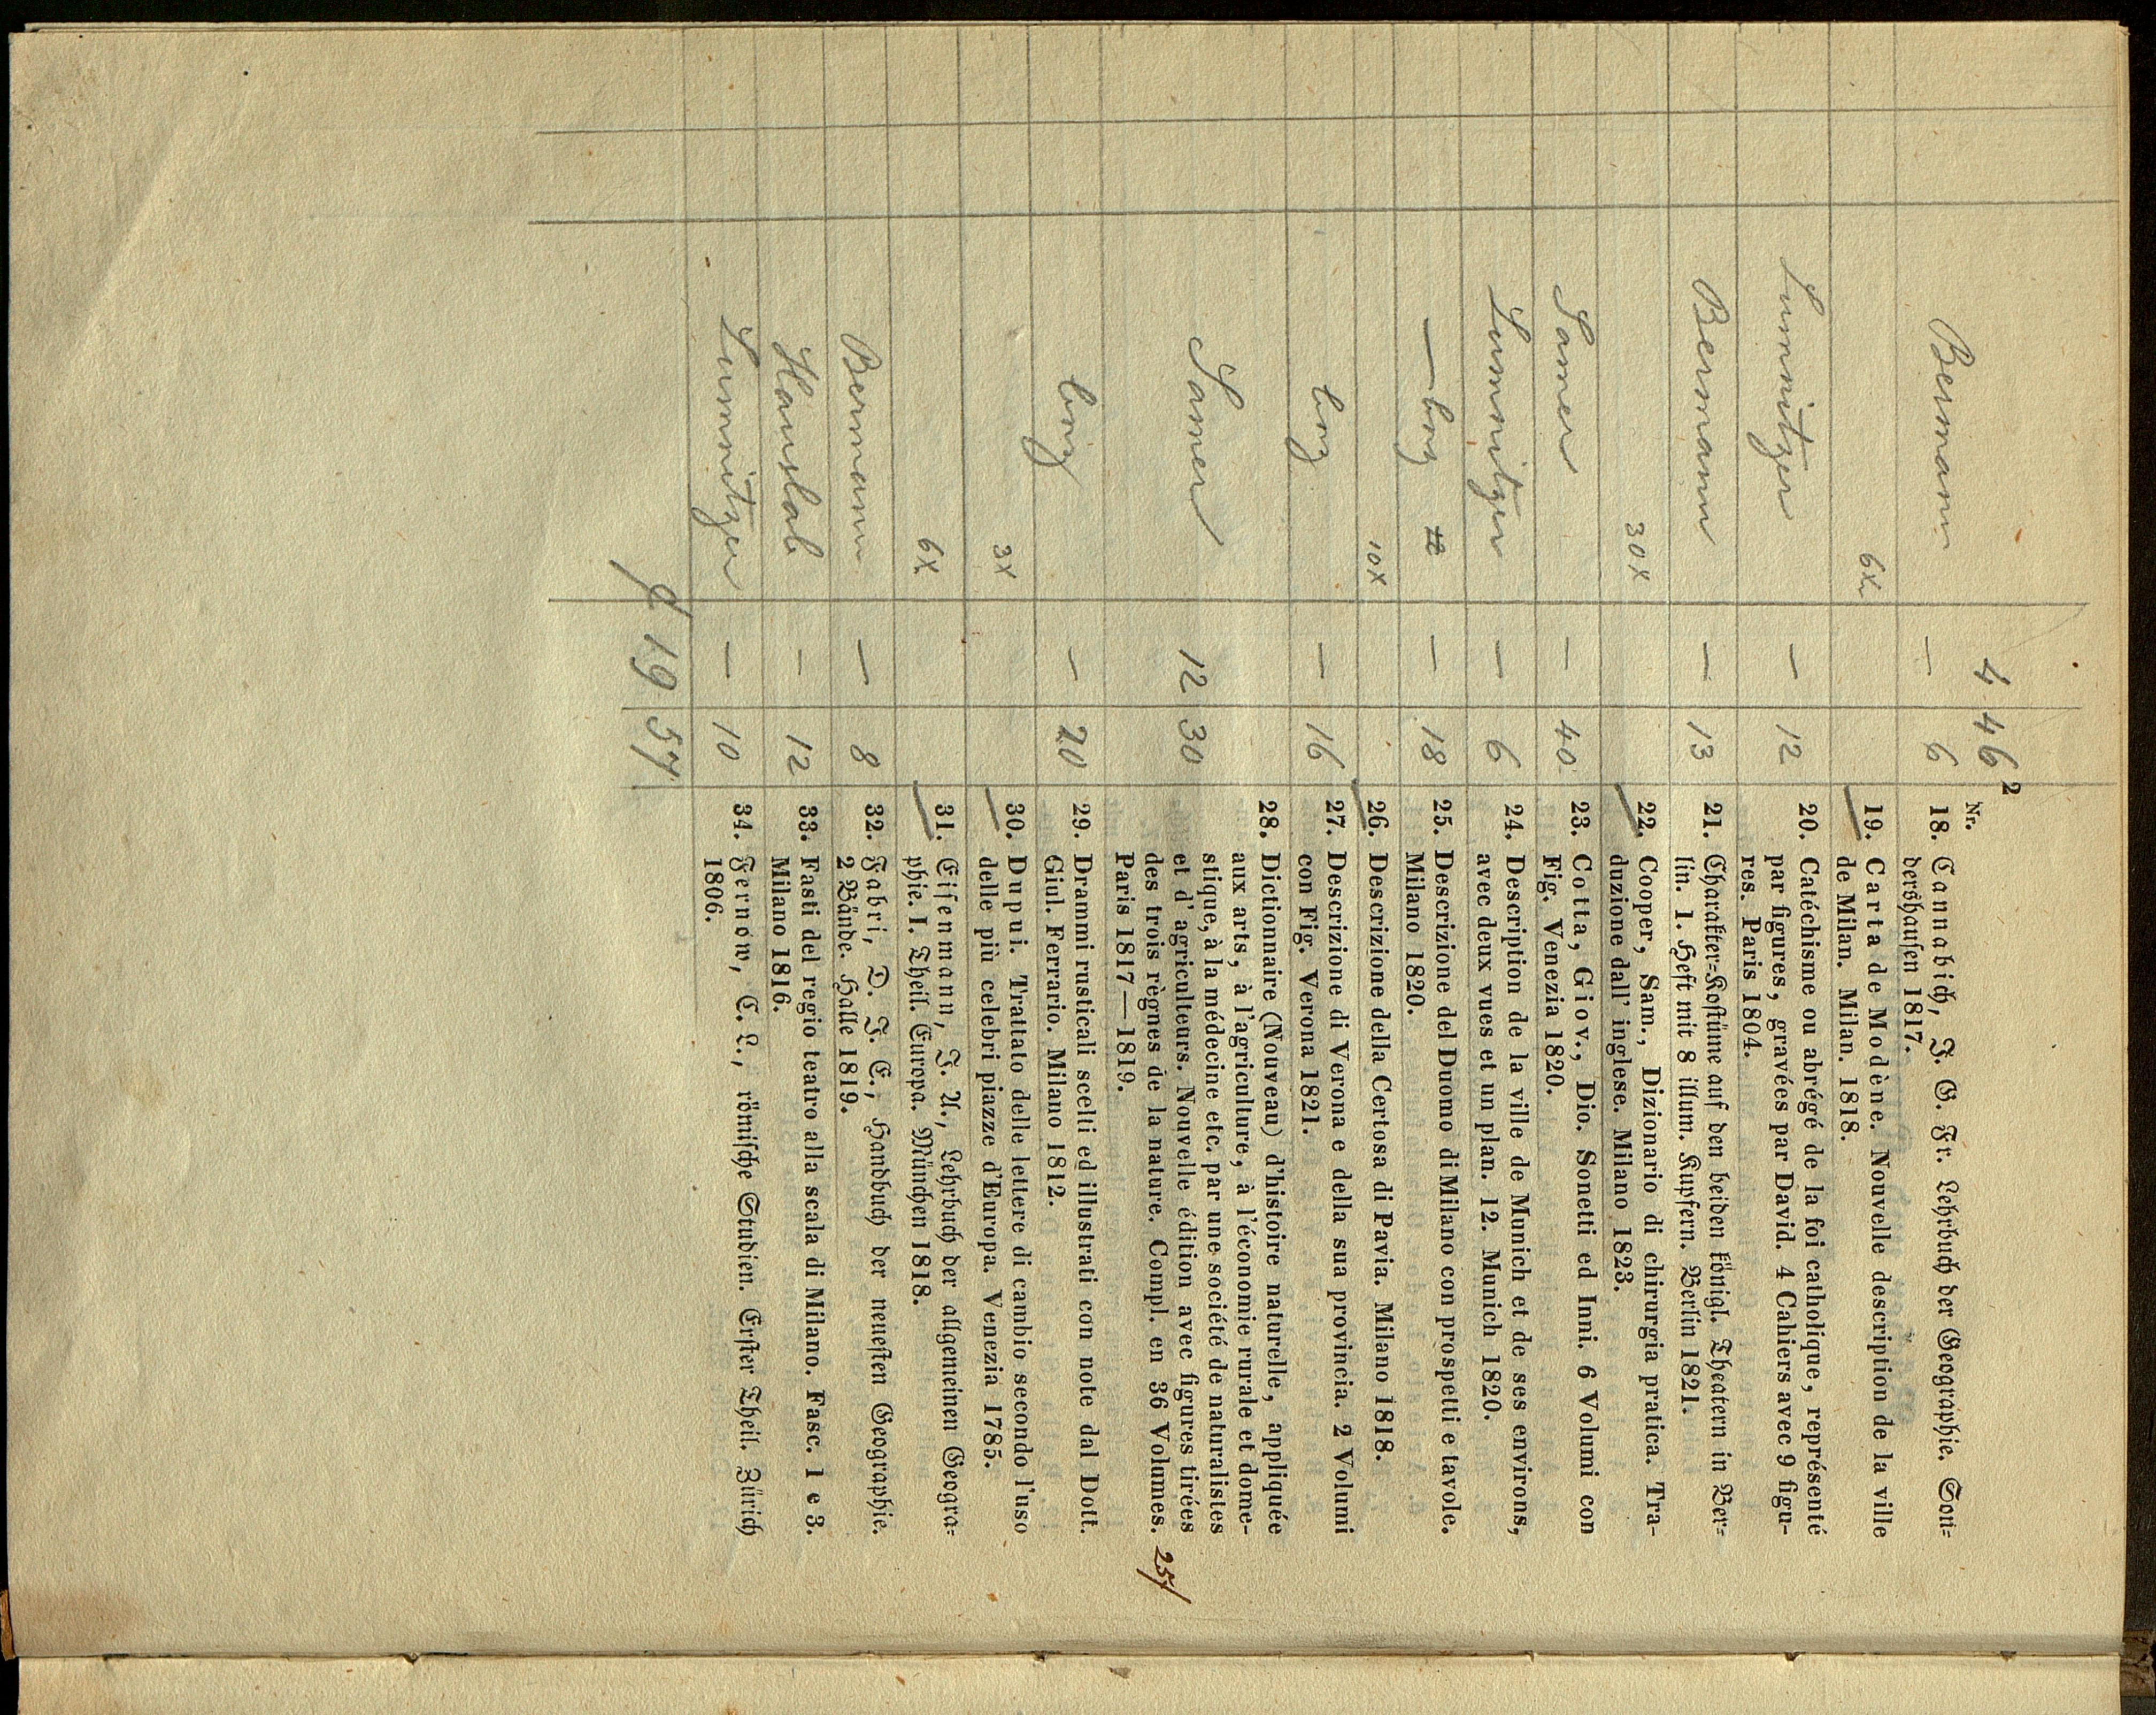 2
4 46
Nr.
Bermann — 6 18. Cannabich, J. G. Fr. Lehrbuch der Geographie. Son=
dershausen 1817.
6x 19. Carta de Modène. Nouvelle description de la ville
de Milan. Milan. 1818.
Lumnitzer — 12 20. Catéchisme ou abrégé de la foi catholique, représenté
par figures, gravées par David. 4 Cahiers avec 9 figu-
res. Paris 1804.
Bermann — 13 21. Charakter=Kostüme auf den beiden königl. Theatern in Ber=
lin. 1. Heft mit 8 illum. Kupfern. Berlin 1821.
30x 22. Cooper, Sam., Dizionario di chirurgia pratica. Tra-
duzione dall' inglese. Milano 1823.
— 40 23. Cotta, Giov., Dio. Sonetti ed Inni. 6 Volumi con
Fig. Venezia 1820.
Lumnitzer — 6 24. Description de la ville de Munich et de ses environs,
avec deux vues et un plan. 12. Munich 1820.
— 18 25. Descrizione del Duomo di Milano con prospetti e tavole.
Milano 1820.
10x 26. Descrizione della Certosa di Pavia. Milano 1818.
— 16 27. Descrizione di Verona e della sua provincia. 2 Volumi
con Fig. Verona 1821.
28. Dictionnaire (Nouveau) d'histoire naturelle, appliquée
aux arts, à l'agriculture, à l'économie rurale et dome-
stique, à la médecine etc. par une société de naturalistes
12 30 et d' agriculteurs. Nouvelle édition avec figures tirées
des trois règnes de la nature. Compl. en 36 Volumes.
Paris 1817—1819.
— 20 29. Drammi rusticali scelti ed illustrati con note dal Dott.
Giul. Ferrario. Milano 1812.
3x 30. Dupui. Trattato delle lettere di cambio secondo l'uso
delle più celebri piazze d'Europa. Venezia 1785.
6x 31. Eisenmann, J. A., Lehrbuch der allgemeinen Geogra=
phie. I. Theil. Europa. München 1818.
Bermann — 8 32. Fabri, D. J. E., Handbuch der neuesten Geographie.
2 Bände. Halle 1819.
Hauslab — 12 33. Fasti del regio teatro alla scala di Milano. Fasc. 1 e 3.
Milano 1816.
Lumnitzer — 10 34. Fernow, C. L., römische Studien. Erster Theil. Zürich
1806.
19 57